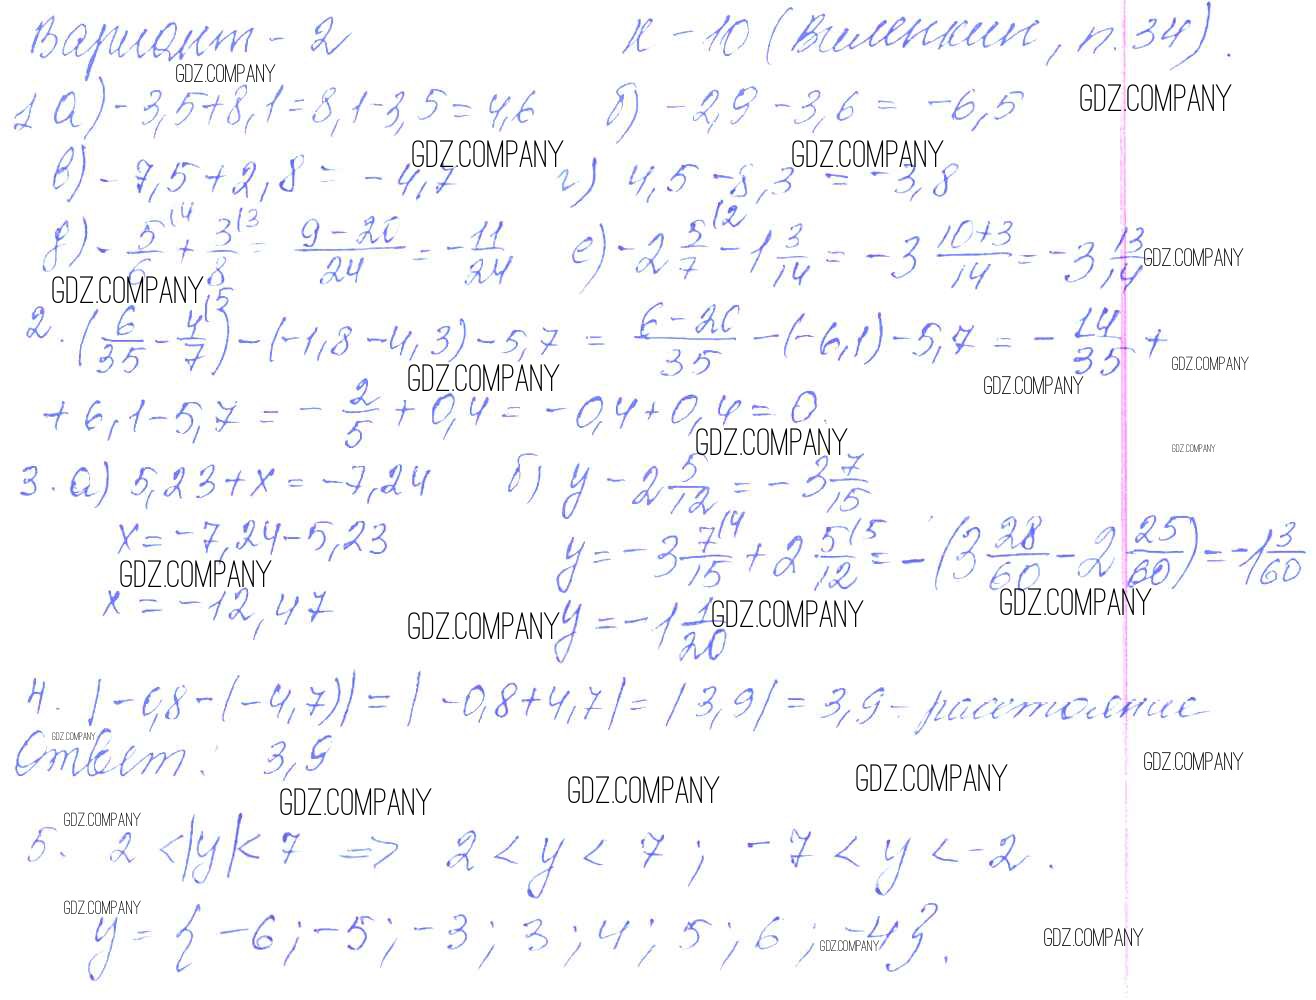 Вариант - 2 К - 10 (Виленкин, п. 34).
GDZ.COMPANY
1 а) -3,5+8,1=8,1-3,5=4,6 б) -2,9-3,6=-6,5 GDZ.COMPANY
GDZ.COMPANY GDZ.COMPANY
в) -7,5+2,8=-4,7 г) 4,5-8,3=-3,8
д) -5/6\4 + 3/8\3 = (9-20)/24 = -11/24 е) -2 5/7\2 - 1 3/14 = -3 (10+3)/14 = -3 13/14 GDZ.COMPANY
GDZ.COMPANY
2. (6/35 - 4/7\5) - (-1,8-4,3) - 5,7 = (6-20)/35 - (-6,1) - 5,7 = -14/35 +
GDZ.COMPANY GDZ.COMPANY GDZ.COMPANY
+ 6,1-5,7 = -2/5 + 0,4 = -0,4+0,4 = 0.
GDZ.COMPANY GDZ.COMPANY
3. а) 5,23+x = -7,24 б) y - 2 5/12 = -3 7/15
x = -7,24-5,23 y = -3 7/15\4 + 2 5/12\5 = -(3 28/60 - 2 25/60) = -1 3/60
GDZ.COMPANY GDZ.COMPANY
x = -12,47 y = -1 1/20
GDZ.COMPANY GDZ.COMPANY
4. |-0,8-(-4,7)| = |-0,8+4,7| = |3,9| = 3,9 - расстояние
GDZ.COMPANY
Ответ: 3,9 GDZ.COMPANY
GDZ.COMPANY GDZ.COMPANY GDZ.COMPANY
GDZ.COMPANY
5. 2 < |y| < 7 => 2 < y < 7; -7 < y < -2.
GDZ.COMPANY
y = {-6; -5; -3; 3; 4; 5; 6; -4}.
GDZ.COMPANY GDZ.COMPANY